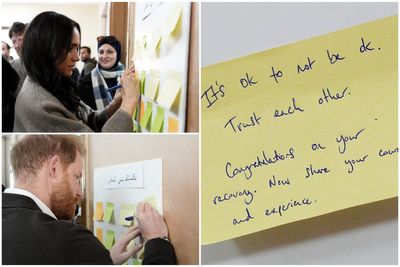 It's ok to not be ok.
Trust each other.
Congratulations on your
recovery. Now share your
and experience.